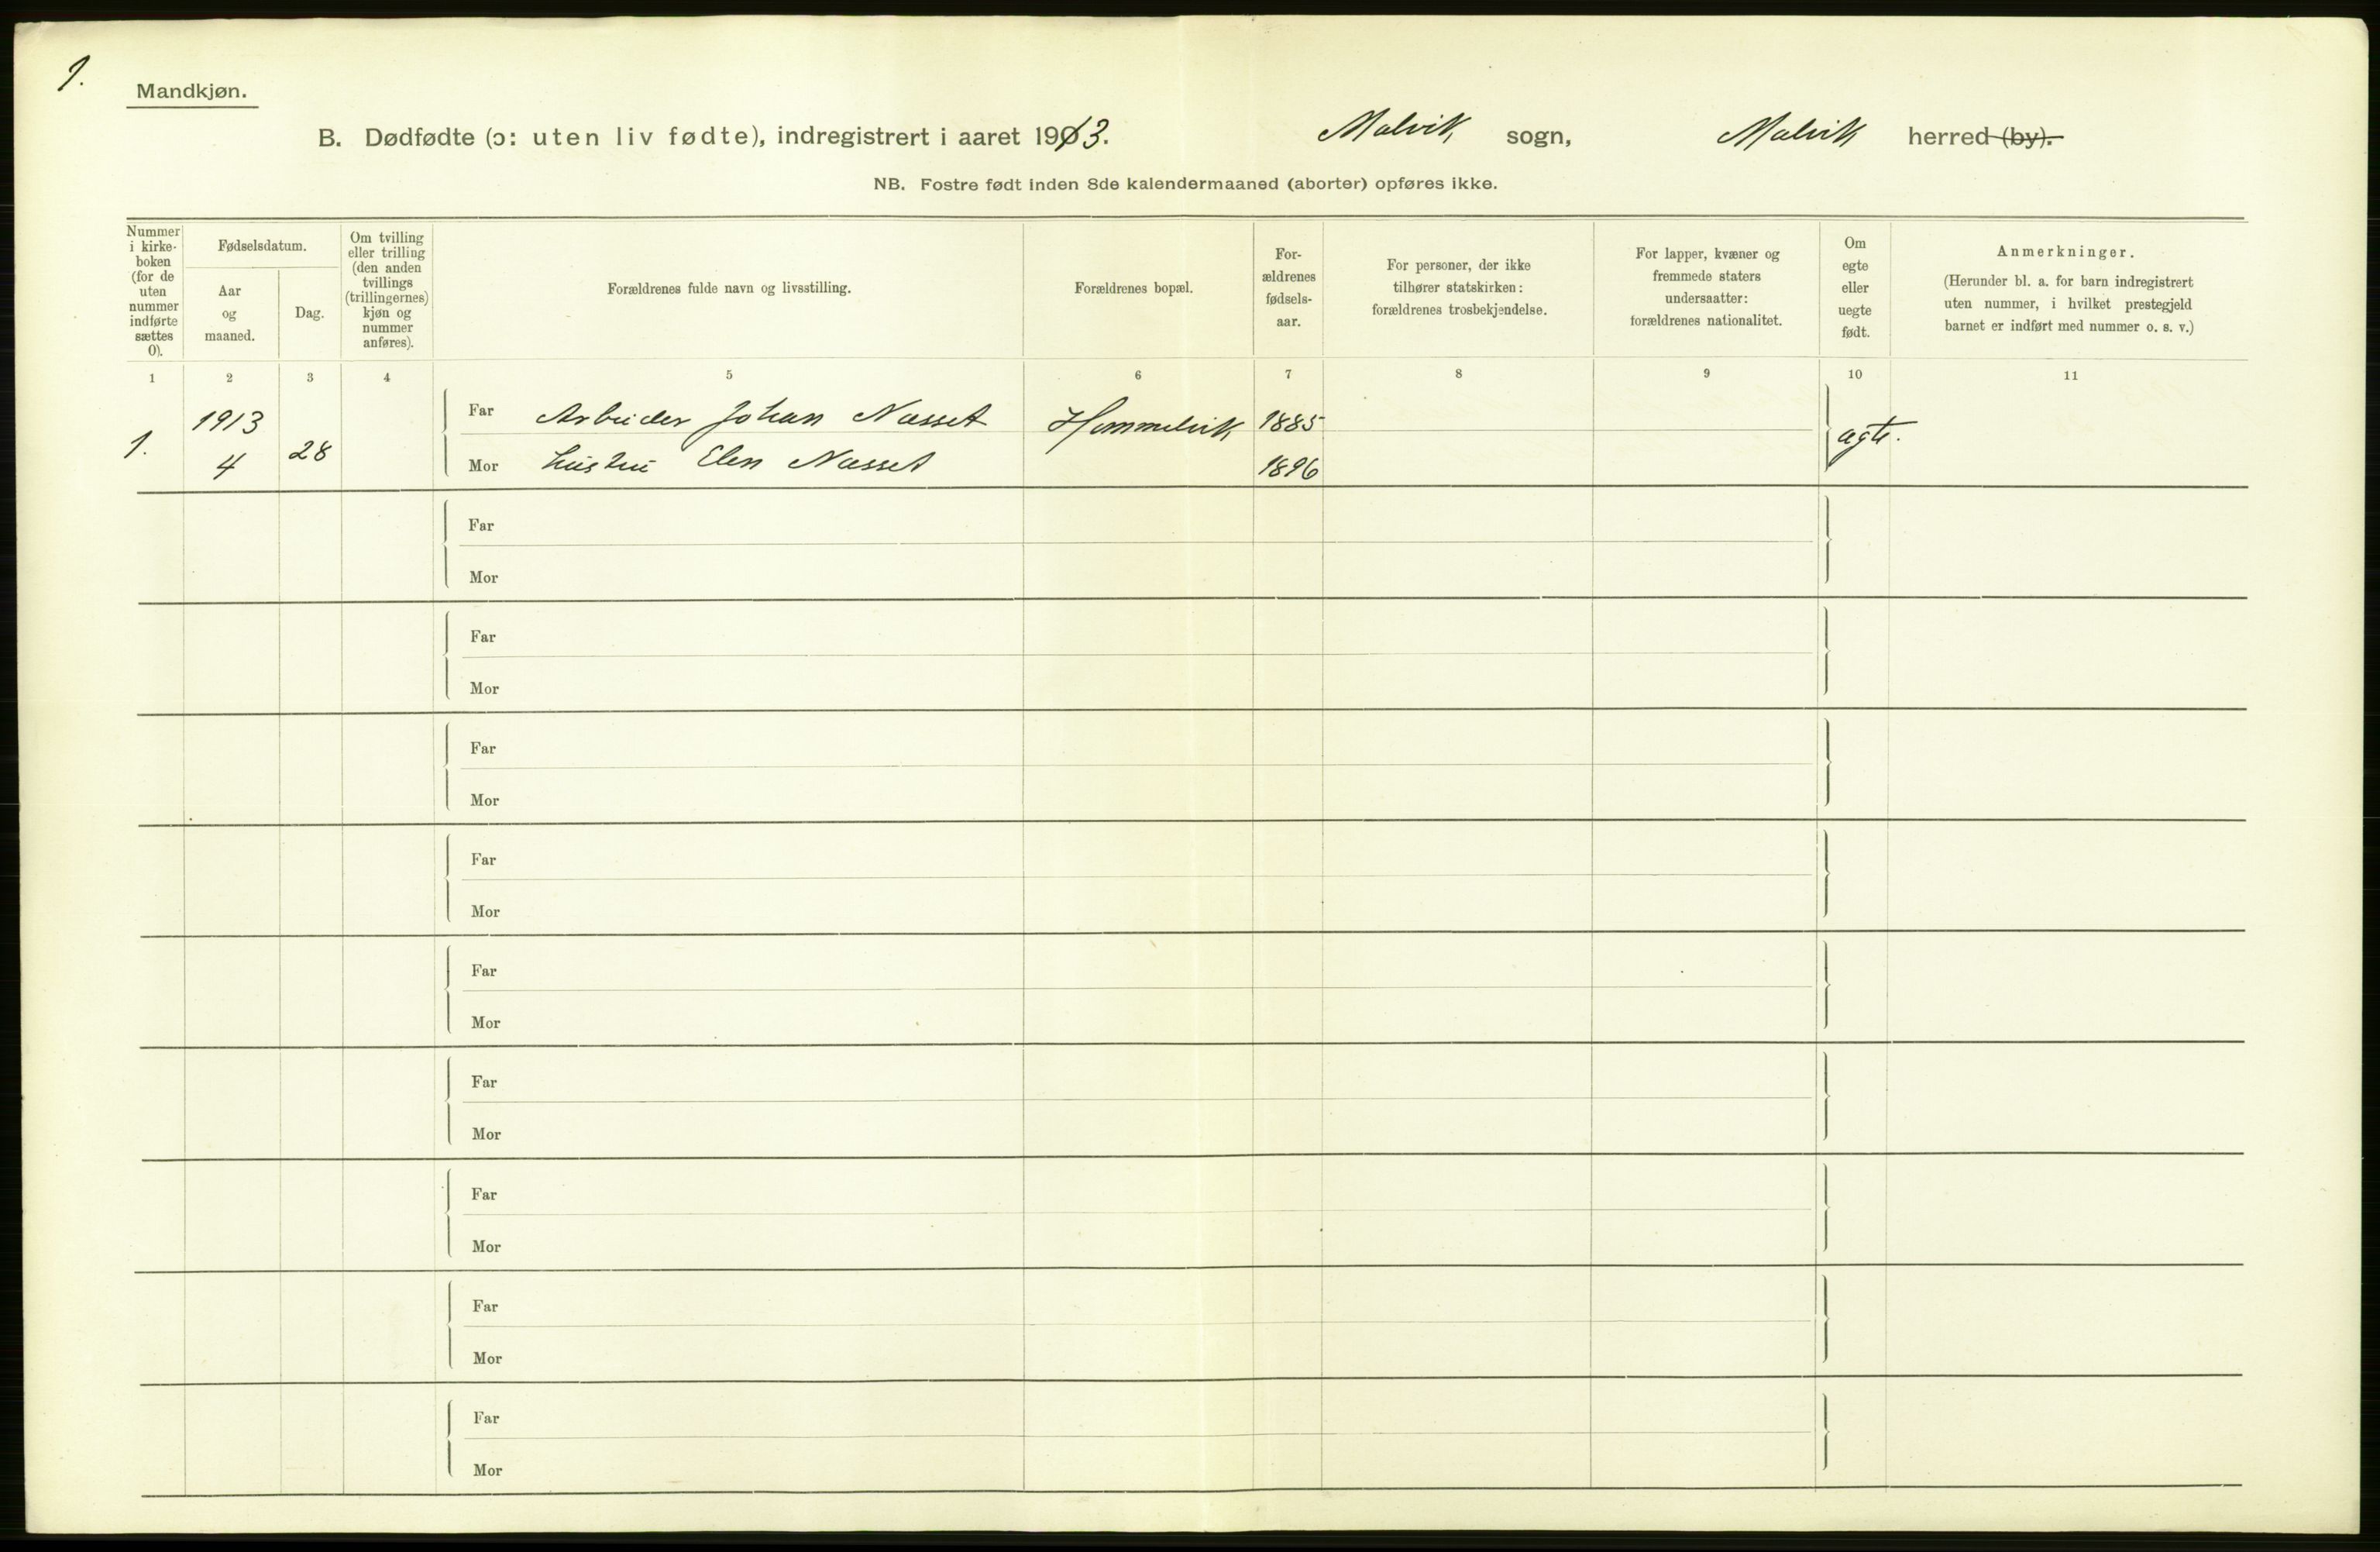 1.
Mandkjøn.
B. Dødfødte (ɔ: uten liv fødte), indregistrert i aaret 1913. Malvik sogn, Malvik herred (by).
NB. Fostre født inden 8de kalendermaaned (aborter) opføres ikke.
Nummer
i kirke-
boken
(for de
uten
nummer
indførte
sættes
0).
Fødselsdatum.
Aar
og
maaned.
Dag.
Om tvilling
eller trilling
(den anden
tvillings
(trillingernes)
kjøn og
nummer
anføres).
Forældrenes fulde navn og livsstilling.
Forældrenes bopæl.
For-
ældrenes
fødsels-
aar.
For personer, der ikke
tilhører statskirken:
forældrenes trosbekjendelse.
For lapper, kvæner og
fremmede staters
undersaatter:
forældrenes nationalitet.
Om
egte
eller
uegte
født.
Anmerkninger.
(Herunder bl. a. for barn indregistrert
uten nummer, i hvilket prestegjeld
barnet er indført med nummer o. s. v.)
1 2 3 4 5 6 7 8 9 10 11
1. 1913 4 28
Far Arbeider Johan Næsset Hommelvik 1885 ægte.
Mor hustru Elen Næsset 1896
Far
Mor
Far
Mor
Far
Mor
Far
Mor
Far
Mor
Far
Mor
Far
Mor
Far
Mor
Far
Mor